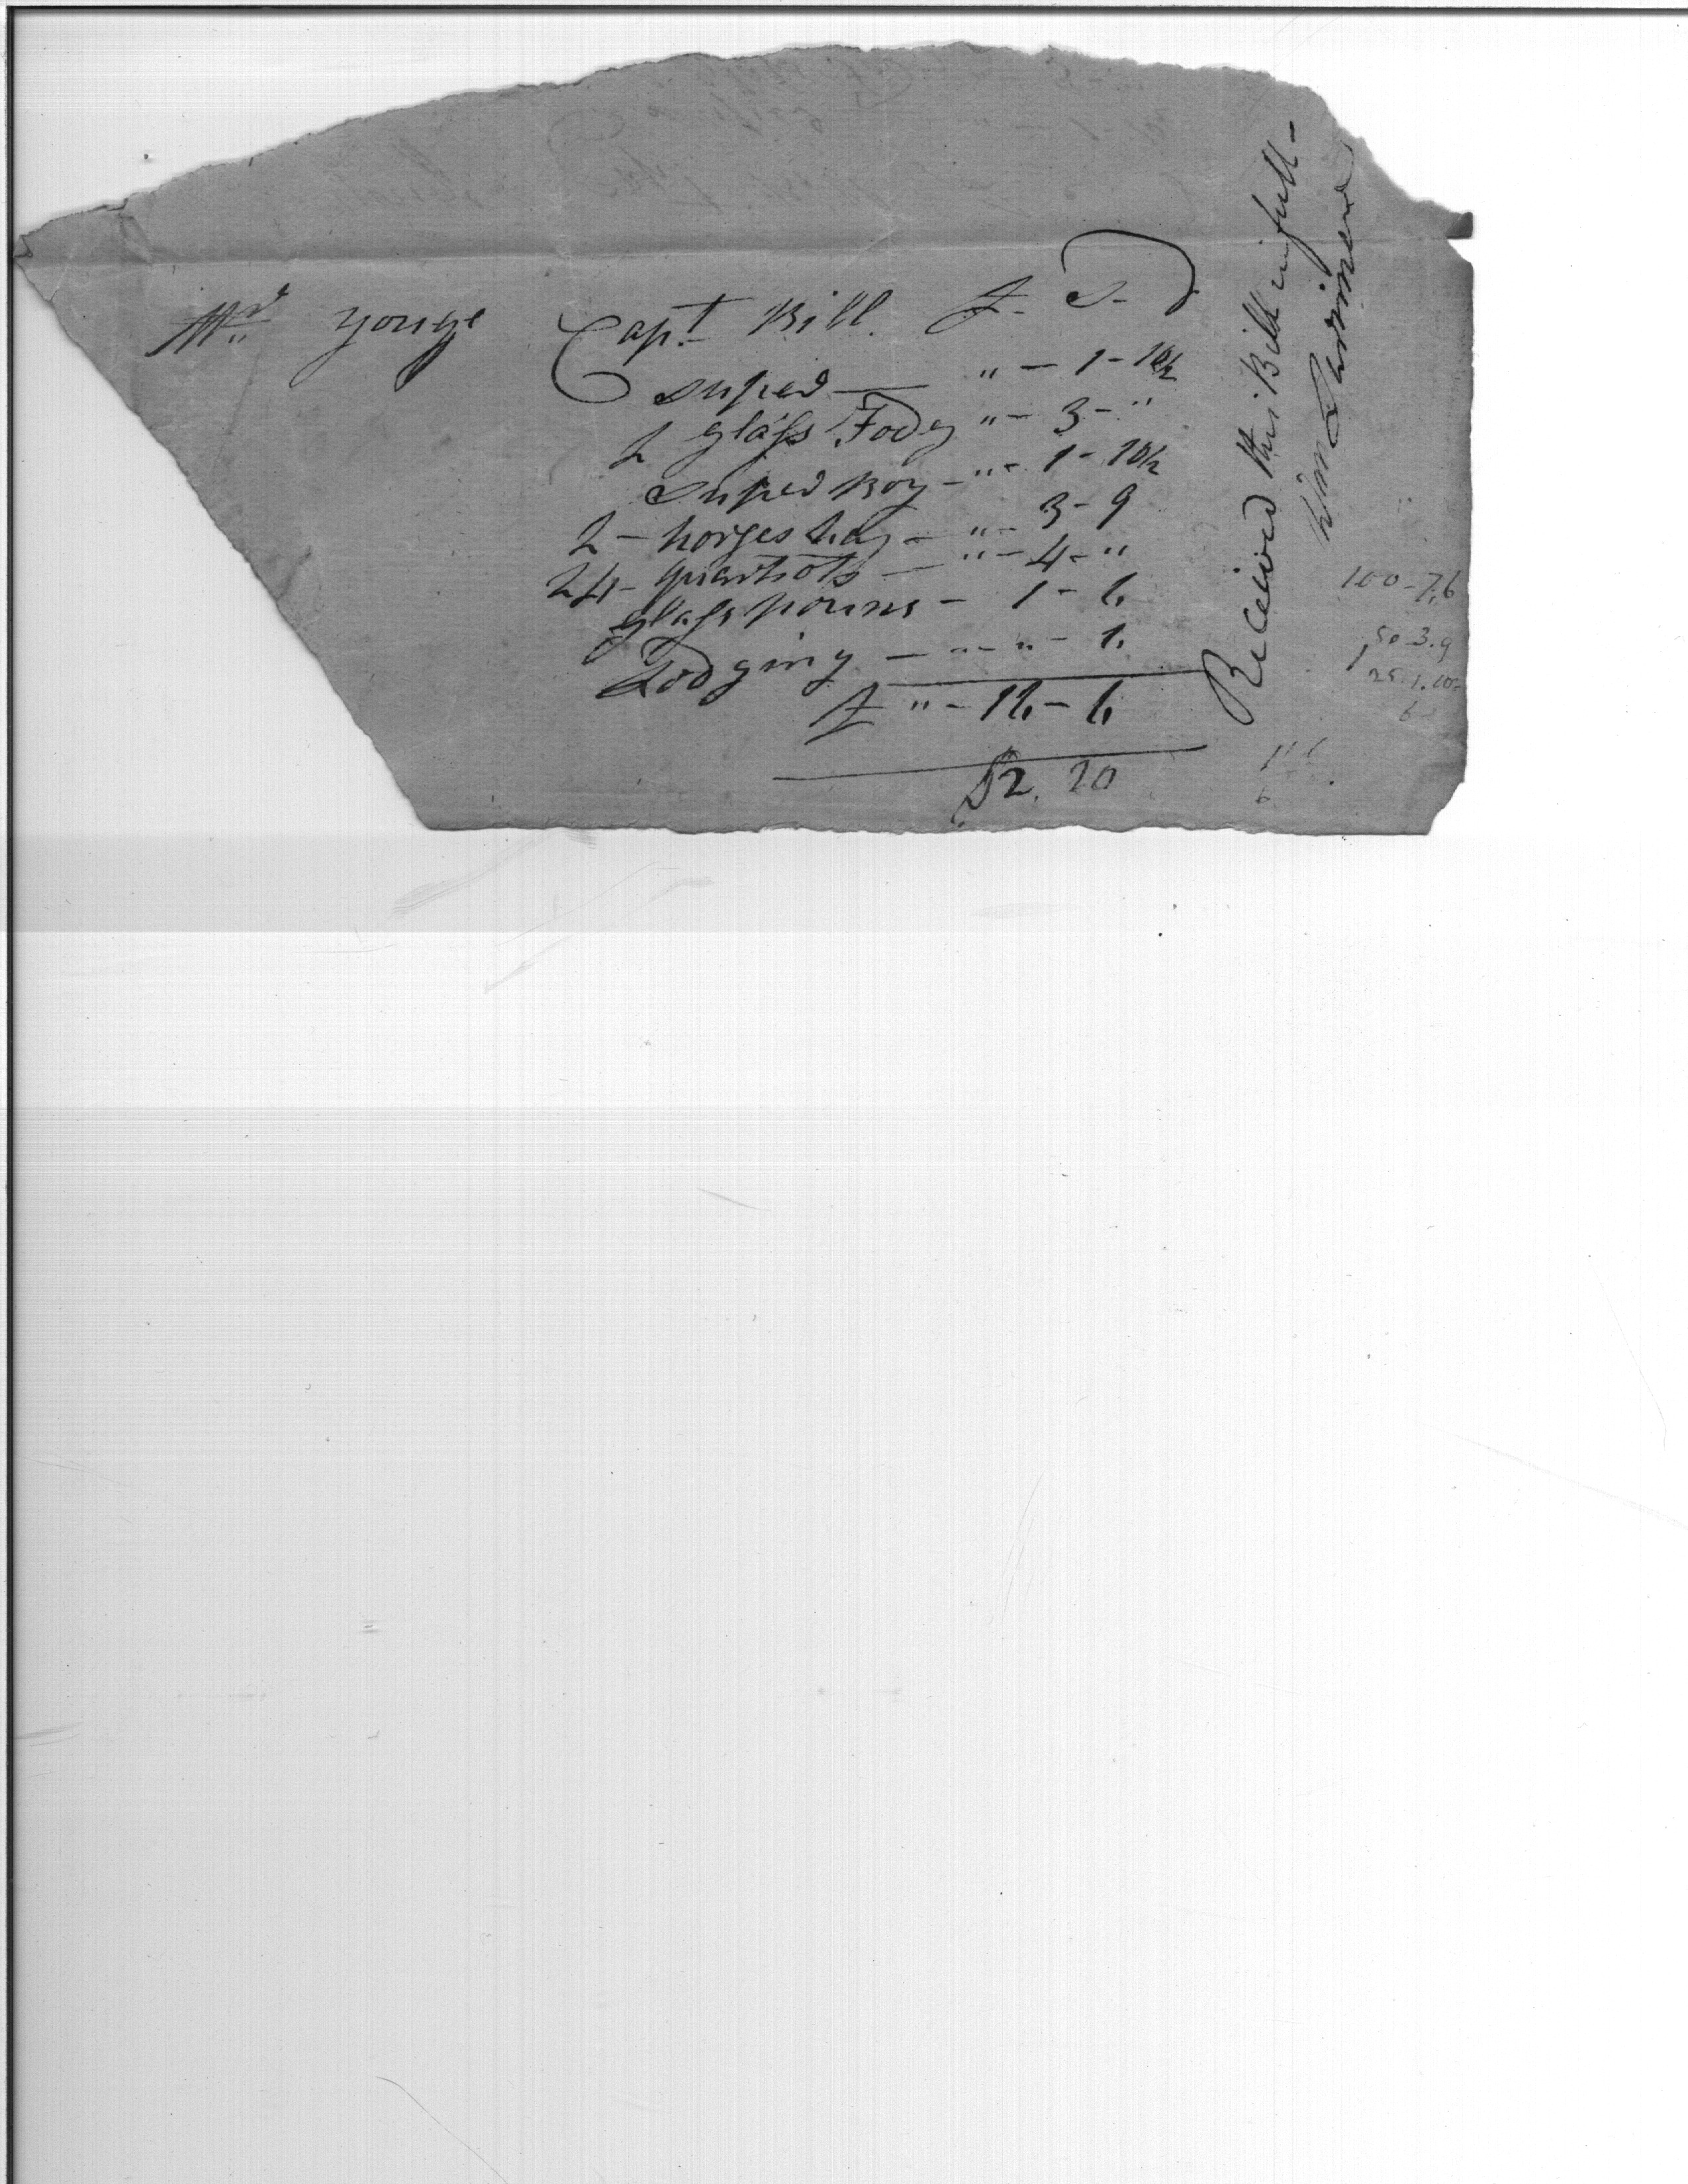 Mr. yonge Capt Bill. £ S D
suped — " - 1 - 10½
2 glass Tody " - 3 - "
suped Boy - " - 1 - 10½
2 - horses hay - " - 3 - 9
24 - quarts ots — " - 4 - "
glass - 1 - 6
Lodging — " - " - 6
£ " - 16 - 6
$2. 20
Received this Bill in full -
Wm
100 - 7.6
50 3.9
25.1.10
6